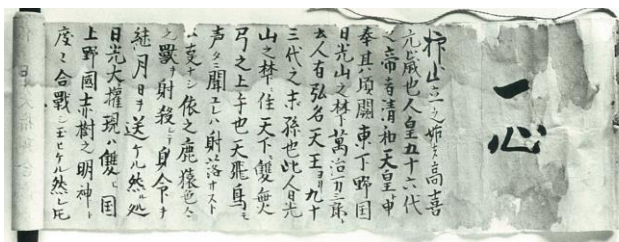 一心
抑山立之始者高喜
元歳也人皇五十六代
之帝者清和天皇ト申
奉其ノ頃關東下野国
日光山之麓萬治万三郎ト
云人有弘名天王ヨリ九十
三代之末孫也此人日光
山之麓ニ住天下ニ雙無
弓之上手也天飛鳥モ
声タニ聞エレハ射落サスト
云支ナシ依之鹿猿色々
之獸ヲ射殺シテ身命ヲ
継月日ヲ送ケル然ル処
日光大權現ハ雙ヒ国
上野國赤樹之明神ト
度々合戰シ玉ヒケル然レ𪜈